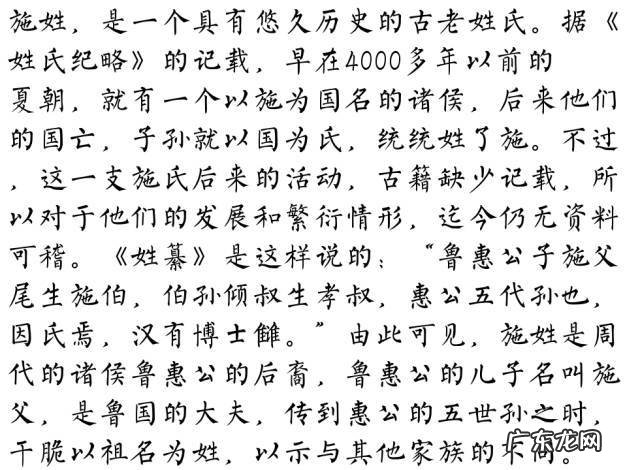 施姓，是一个具有悠久历史的古老姓氏。据《
姓氏纪略》的记载，早在4000多年以前的
夏朝，就有一个以施为国名的诸侯，后来他们
的国亡，子孙就以国为氏，统统姓了施。不过
，这一支施氏后来的活动，古籍缺少记载，所
以对于他们的发展和繁衍情形，迄今仍无资料
可稽。《姓纂》是这样说的：“鲁惠公子施父
尾生施伯，伯孙倾叔生孝叔，惠公五代孙也，
因氏焉，汉有博士雠。”由此可见，施姓是周
代的诸侯鲁惠公的后裔，鲁惠公的儿子名叫施
父，是鲁国的大夫，传到惠公的五世孙之时，
干脆以祖名为姓，以示与其他家族的不同。
广东龙网